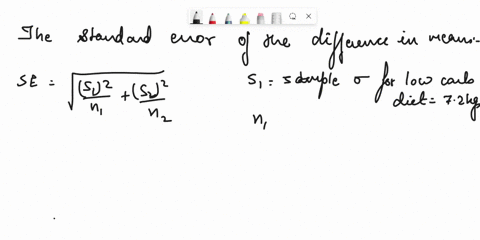 The standard error of the difference in mean
SE = √((S₁)²/n₁ + (S₂)²/n₂)
S₁ = sample σ for low carb
diet = 7.2kg
n₁